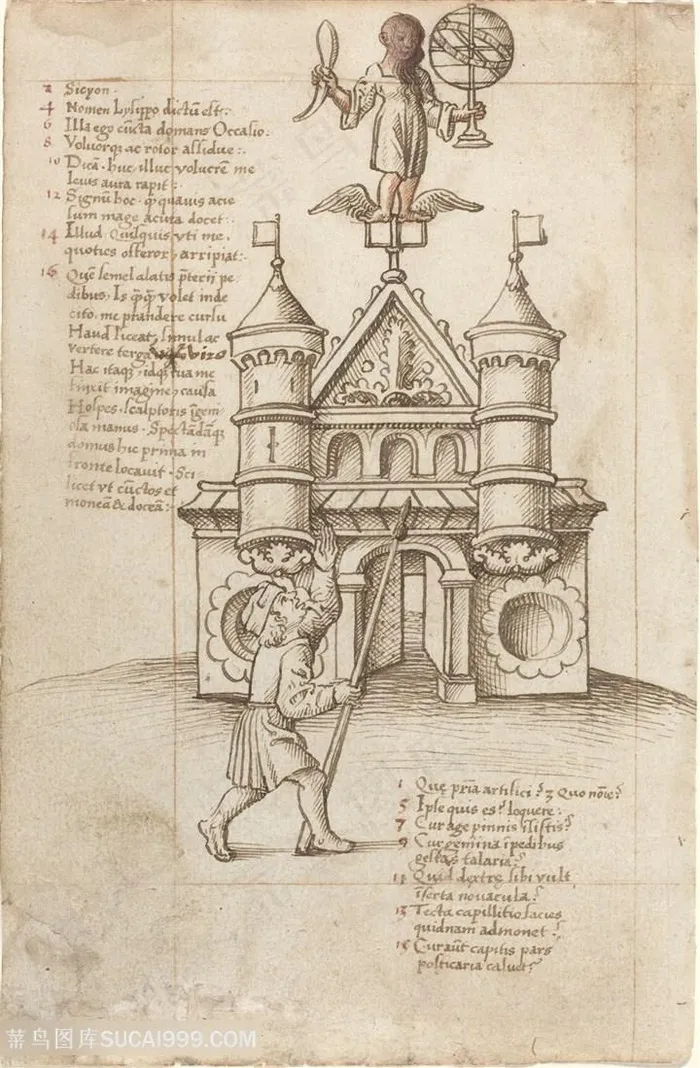 2 Sicyon.
4 Nomen Lysippo dictū est:.
6 Illa ego cūcta domans Occasio.
8 Voluorq; ac rotor assidue:.
10 Dicā. huc, illuc volucrē me
leuis aura rapit:.
12 Signū hoc. q quauis acie
sum mage acuta docet:.
14 Illud. Quisquis vti me,
quoties offeror, arripiat:.
16 Quē semel alatis pterii pe
dibus, Is volet inde
cito, me prandere cursu
Haud liceat, simul ac
vertere terga
Hac itaq; idq; tua me
finxit imagine, causa
Hospes. scalptoris īgeni
osa manus. Spectādāq;
domus hic prima in
fronte locauit. Sci
licet vt cūctos et
moneā & doceā:.
1 Quę pria artifici? 3 Quo nōie?
5 Ipse quis es? loquere:
7 Cur age pinnis īsistis?
9 Cur gemina īpedibus
gestas talaria?
11 Quid dextrę sibi vult
īserta nouacula?
13 Tecta capillitio facies
quidnam admonet?
15 Cur aūt capitis pars
posticaria caluet?
菜鸟图库SUCAI999.COM